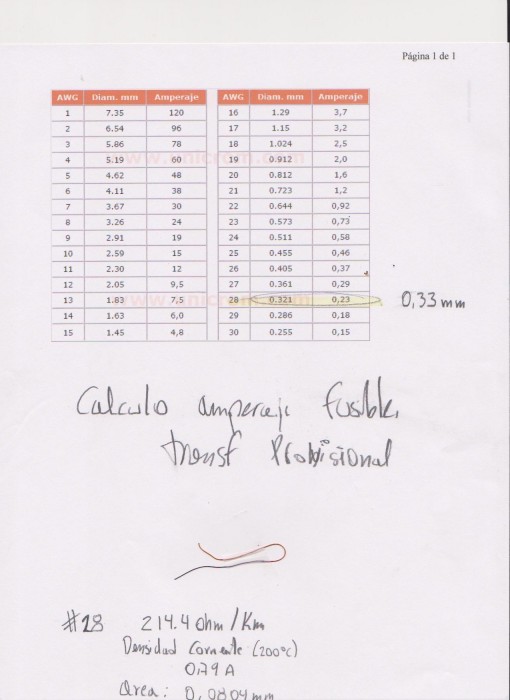 Página 1 de 1
AWG Diam. mm Amperaje AWG Diam. mm Amperaje
1 7.35 120 16 1.29 3,7
2 6.54 96 17 1.15 3,2
3 5.86 78 18 1.024 2,5
4 5.19 60 19 0.912 2,0
5 4.62 48 20 0.812 1,6
6 4.11 38 21 0.723 1,2
7 3.67 30 22 0.644 0,92
8 3.26 24 23 0.573 0,73
9 2.91 19 24 0.511 0,58
10 2.59 15 25 0.455 0,46
11 2.30 12 26 0.405 0,37
12 2.05 9,5 27 0.361 0,29
13 1.83 7,5 28 0.321 0,23 0,33 mm
14 1.63 6,0 29 0.286 0,18
15 1.45 4,8 30 0.255 0,15
Calculo amperaje fusible,
transf Provisional
#28 214.4 ohm/Km
Densidad Corriente (200°C)
0,79 A
Area: 0,0804 mm